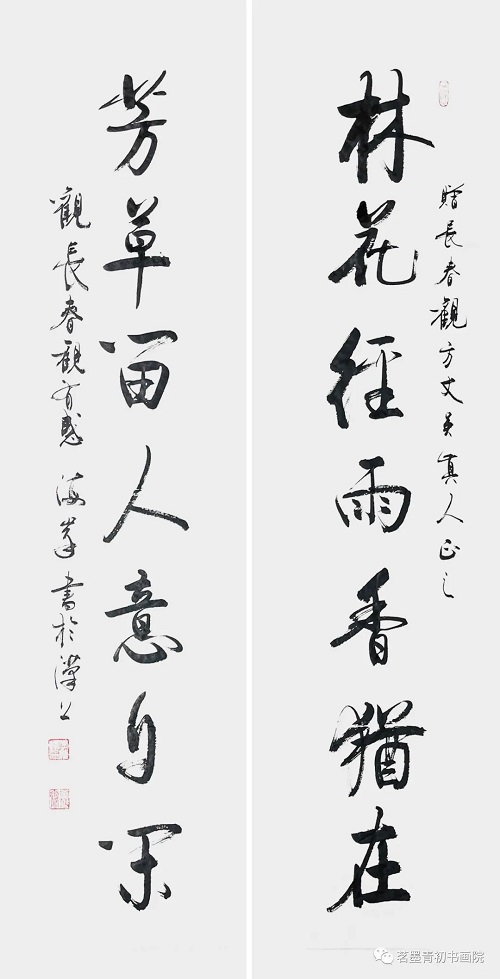 贈長春觀方丈吴真人正之
林花經雨香猶在
芳草留人意自閑
觀長春觀有感 海峯書於漢上
茗墨青初书画院